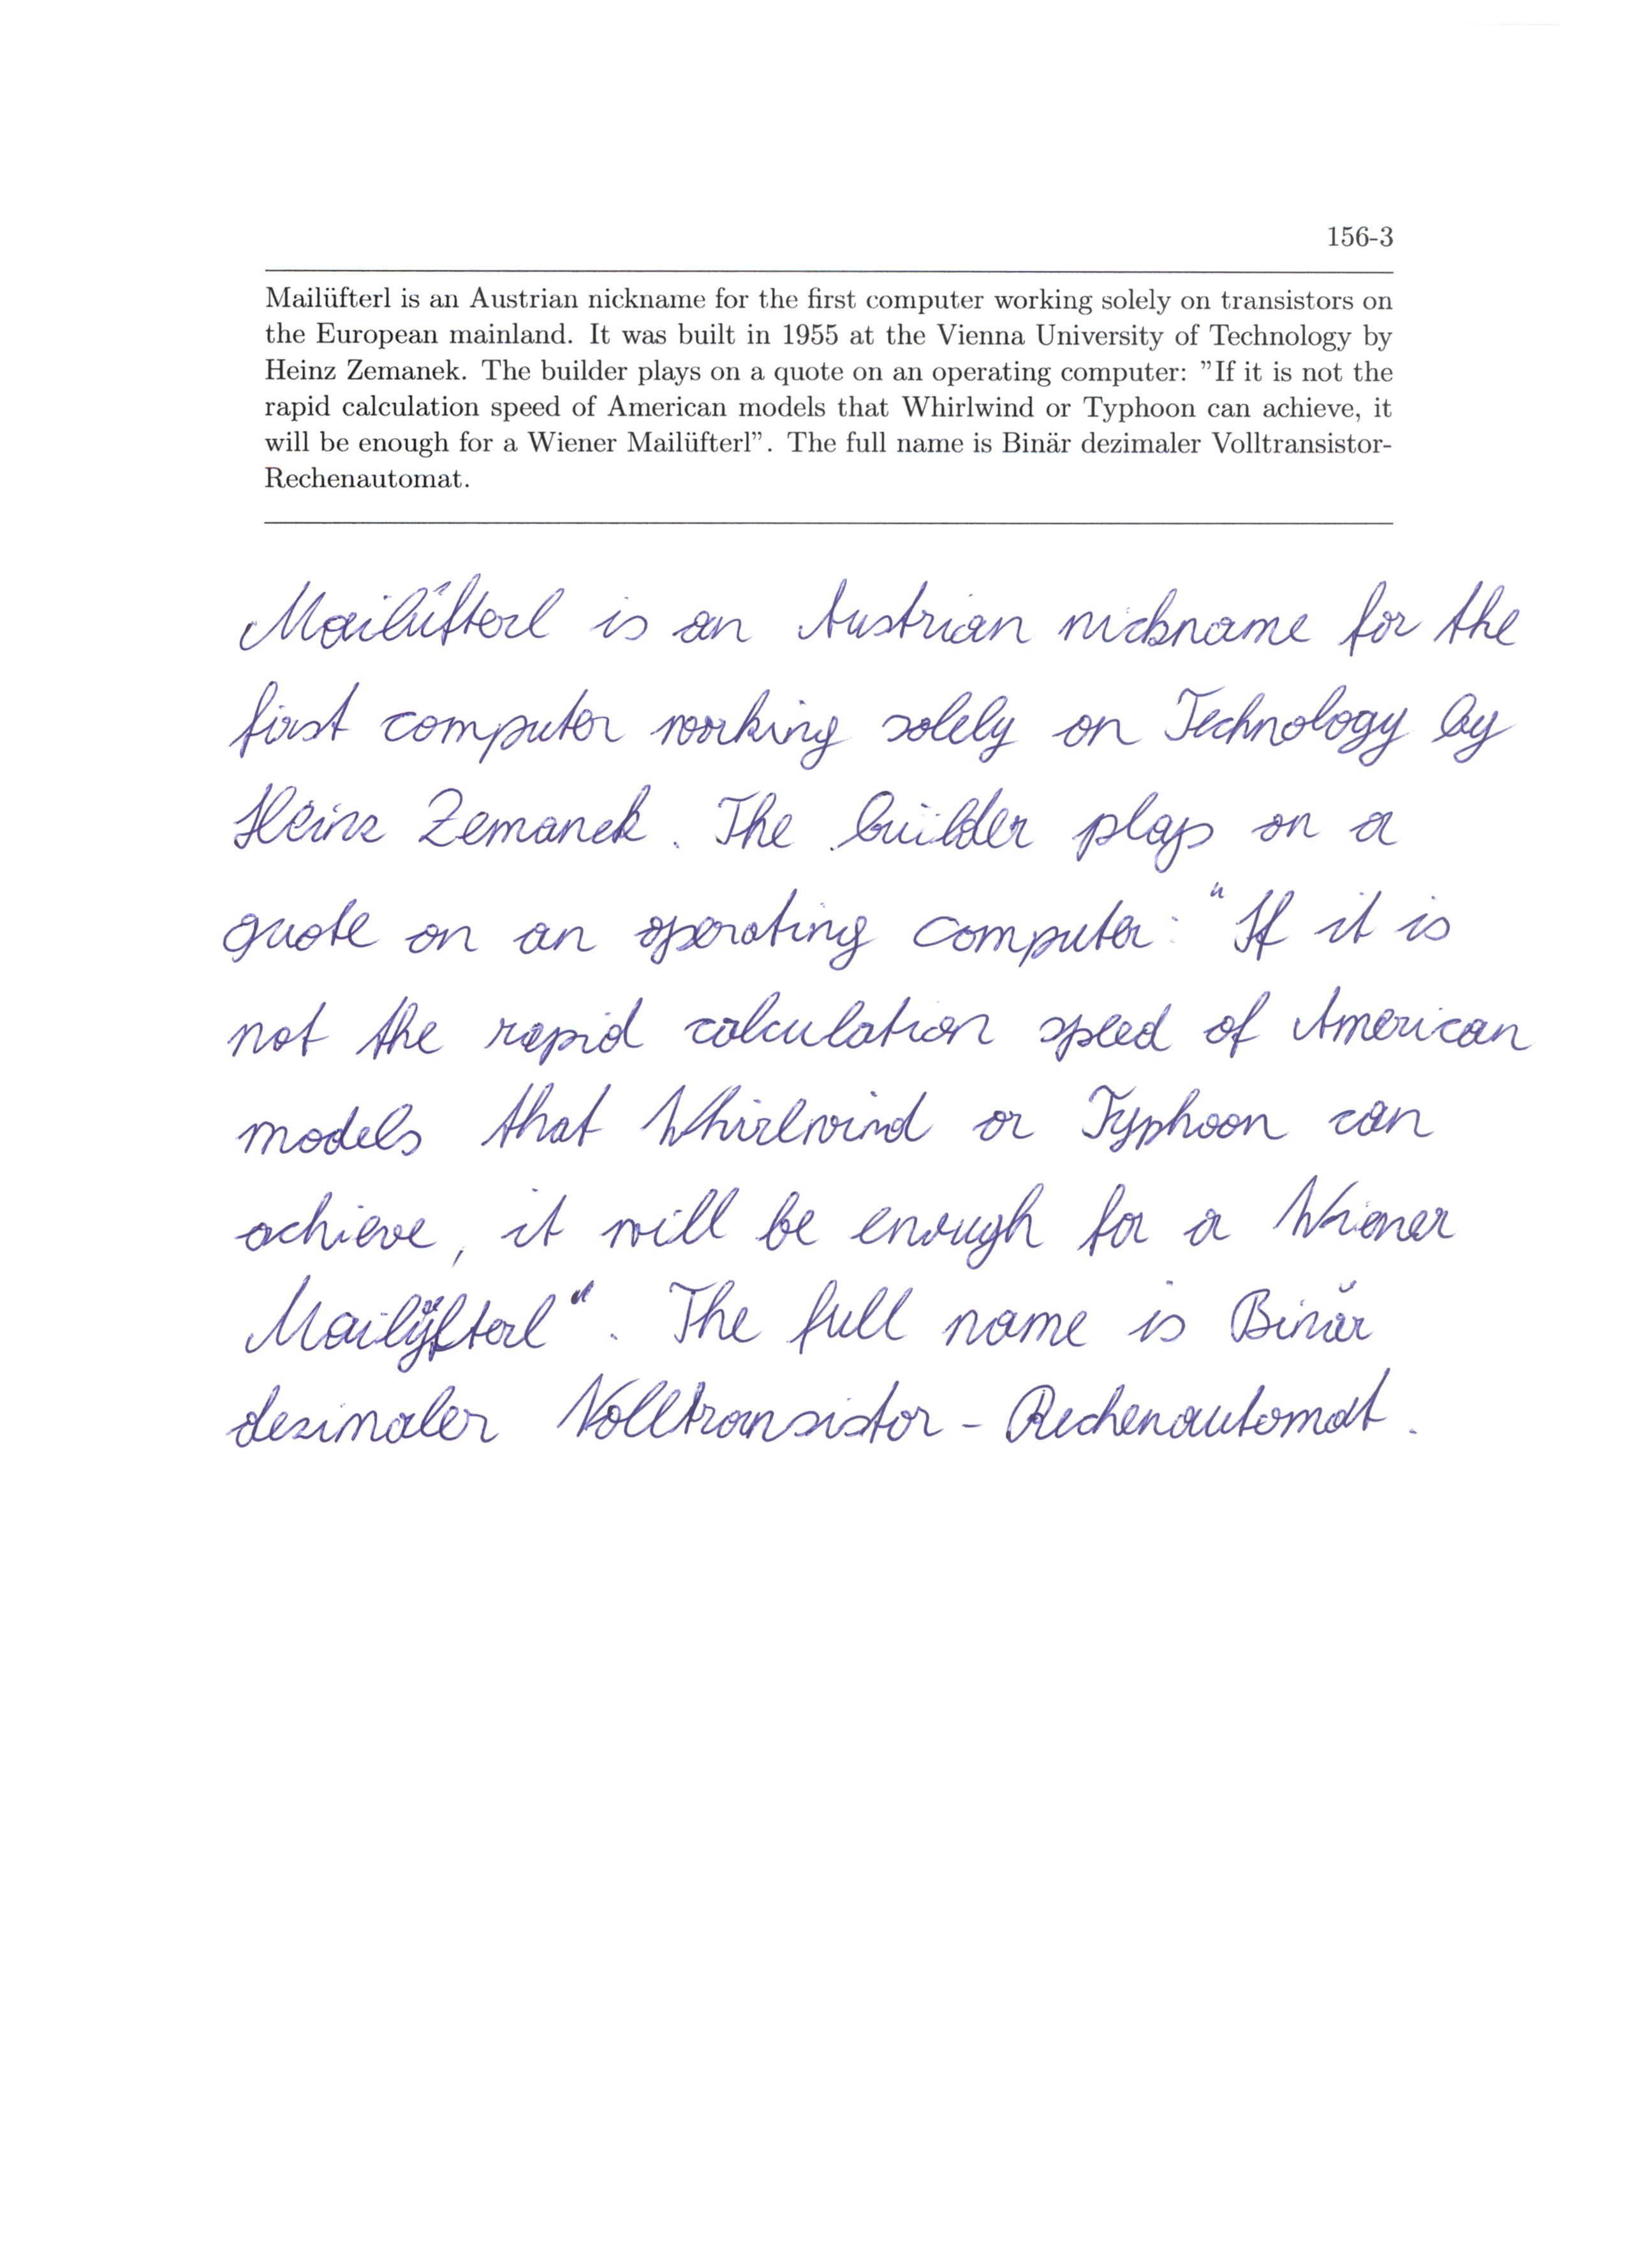 156-3
Mailüfterl is an Austrian nickname for the first computer working solely on transistors on
the European mainland. It was built in 1955 at the Vienna University of Technology by
Heinz Zemanek. The builder plays on a quote on an operating computer: "If it is not the
rapid calculation speed of American models that Whirlwind or Typhoon can achieve, it
will be enough for a Wiener Mailüfterl". The full name is Binär dezimaler Volltransistor-
Rechenautomat.
Mailüfterl is an Austrian nickname for the
first computer working solely on Technology by
Heinz Zemanek. The builder plays on a
quote on an operating computer: "If it is
not the rapid calculation speed of American
models that Whirlwind or Typhoon can
achieve, it will be enough for a Wiener
Mailüfterl". The full name is Binär
dezimaler Volltransistor - Rechenautomat.